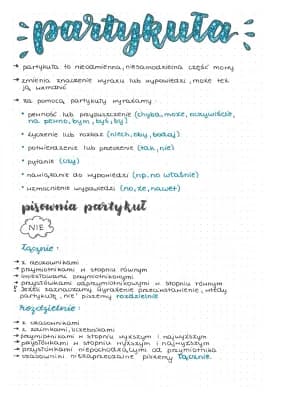 partykuła
→ partykuła to nieodmienna, niesamodzielna część mowy
→ zmienia znaczenie wyrazu lub wypowiedzi, może też
ją wzmocnić
→ za pomocą partykuły wyrażamy:
• pewność lub przypuszczenie (chyba, może, oczywiście,
na pewno, bym, byś, by)
• życzenie lub rozkaz (niech, oby, bodaj)
• potwierdzenie lub przeczenie (tak, nie)
• pytanie (czy)
• nawiązanie do wypowiedzi (np. no właśnie)
• wzmocnienie wypowiedzi (no, że, nawet)
pisownia partykuł
NIE
łącznie:
→ z rzeczownikami
→ przymiotnikami w stopniu równym
→ imiesłowami przymiotnikowymi
→ przysłówkami odprzymiotnikowymi w stopniu równym
→ Jeżeli zaznaczamy wyraźnie przeciwstawienie, wtedy
partykułę „nie" piszemy rozdzielnie
rozdzielnie:
→ z czasownikami
→ z zaimkami, liczebnikami
→ przymiotnikami w stopniu wyższym i najwyższym
→ przysłówkami w stopniu wyższym i najwyższym
→ przysłówkami niepochodzącymi od przymiotnika
→ piszemy łącznie.